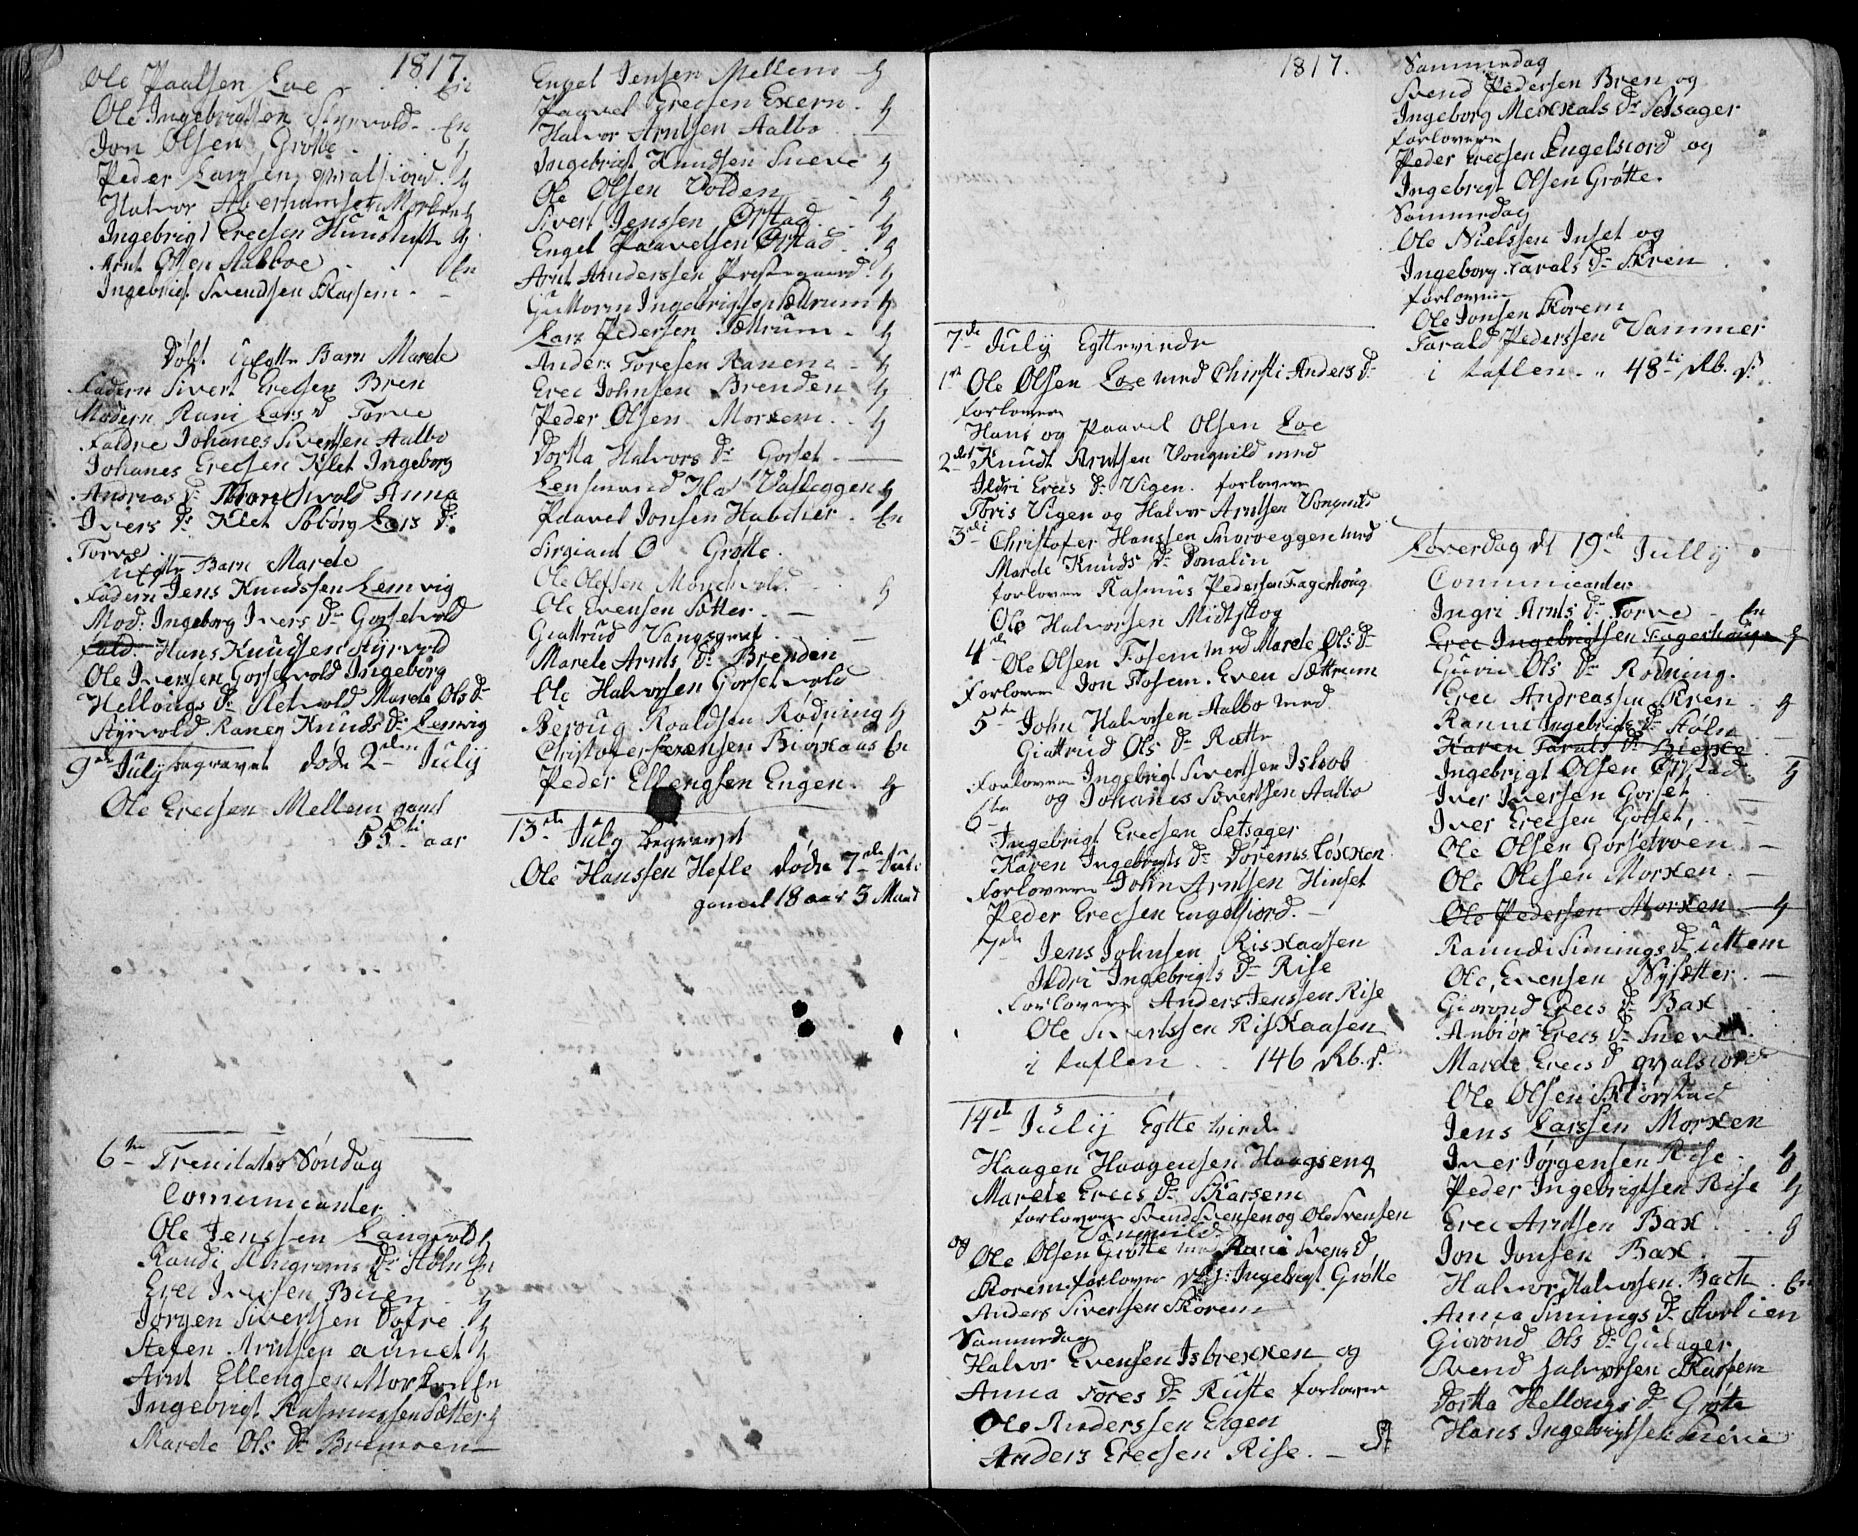 1817.
Ole Paalsen Loe - . . En
Ole Ingebrigtsen Styrvold - En
Jon Olsen Grøtte . . g
Peder Larssen Qvalsiord . g
Halvor Aberhamsen Morken g
Ingebrigt Erecsen Hunstuft g.
Arnt Olsen Aalboe . . En
Ingebrigt Svendsen Skarsem . -
Døbt Uegte Barn Marete
Fadern Sivert Erecsen Bren
Modern Rani Lars D. Torve
Faldre Johanes Sivertsen Aalbo
Johanes Erecsen Klet Ingeborg
Andreas D. Anna
Ivers D. Klet Solørg Lars D.
Torve
Uegte Barn Marete
Fadern Jens Knudssen Lemvig
Mod: Ingeborg Ivers D. Gorsetvold
Fald: Hans Knudsen Styrvold
Ole Iversen Gorsetvold Ingeborg
Hellongs D. Retvold Marete Ols D.
Styrvold Raney Knuds D. Lemvig
9de July begravet døde 2den July
Ole Erecsen Mellem gaml
55ti aar
6te Trenitates Søndag
Comunicanter
Ole Jenssen Langvold g
Randi Ingrams D. Støln En
Erec Iversen Buen . g
Jørgen Sivertsen Dofre . g
Stefen Arntsen aunet g
Arnt Ellengsen Morken En
Ingebrigt Rasmussen Sætter g
Marete Ols D. Bremoen -
Engel Jensen Mellem g
Paavel Erecsen Exern . g
Halvor Arntsen Aalbo . -
Ingebrigt Knudsen Sneve g
Ole Olsen Volden - g
Sivert Jenssen Ørstad . g
Engel Paavelsen Ørstad . g
Arnt Anderssen Prestegaard . g
Guttorm Ingebrigtsen Sættrum g
Lars Pedersen Sættrum . g
Anders Toresen Ranem - g
Erec Johnsen Brenden g
Peder Olsen Morkem . . g
Dortha Halvors D. Gorset . -
Lensmand Hal Vasleggen g
Paavel Jonsen Habetier . En
Sirgiant O Grøtte .
Ole Olefsen Morchvold . g
Ole Evensen Sætter . -
Giattrud Vangsgraf . . -
Marete Arnts D. Brenden
Ole Halvorsen Gorsetvold
Beroug Roaldsen Rødning g
Christopher Sørensen Biørkaas En
Peder Ellengsen Engen . g
13de July begravet
Ole Hanssen Hefle døde 7de July
gamel 18 aar 3 Mand
1817.
7de July Egtteviede
1st Ole Olsen Loe med Chirsti Anders D.
forlovere
Hans og Paavel Olsen Loe
2det Knudt Arntsen Vongvild med
Ildri Erecs D. Vigen . forlovere
Toris Vigen og Halvor Arntsen Vongvild
3di Christofer Hanssen Snorveggen med
Marete Knuds D. Donalin
forlovere Rasmus Pedersen Fagerhoug
Ole Halvorsen Midtskog
4de Ole Olsen Fosem med Marete Ols D.
Forlovere Jon Fosem . Even Sættrum
5te John Halvorsen Aalbo med
Giattrud Ols D. Ratte
Forlovere Ingebrigt Sivertsen Isloob
og Johanes Sivertsen Aalbo
6te
Ingebrigt Erecsen Setsager
Karen Ingebrigts D. Dørems Løkken
Forlovere John Arntsen Hinset
Peder Erecsen Engelsiord . -
7de Jens Johnsen Riskaasen
Ildri Ingebrigts D. Rise
forlovere Anders Jenssen Rise
Ole Sivertssen Riskaasen
i taflen . . 146 Rb. S.
14de July Egtte viede
Haagen Haagensen Haagseng
Marete Erecs D. Skarsem
forlovere Svend Svensen og Ole Svensen
Vongvild
og Ole Olsen Grøtte med Rani Svens D.
Skorem forlovere Ingebrigt Grøtte
Anders Sivertsen Skorem
Sammedag
Halvor Evensen Isbrekken og
Anna Tores D. Ruste forlovere
Ole Anderssen Engen
Anders Erecsen Rise . -
Sammedag
Svend Pedersen Bren og
Ingeborg Mekkals D. Setsager
forlovere
Peder Erecsen Engelsiord og
Ingebrigt Olsen Grøtte .
Sammedag
Ole Nielssen Inset og
Ingeborg Tarals D. Skren
forlovere
Ole Jonsen Skorem
Tarald Pedersen Vammer
i taflen . . 48ti Rb. S.
Løverdag dt 19de Jully
Communicanter
Ingri Arnts D. Torve - En
Erec Ingebrigtsen Fagerhoug g
Guru Ols D. Rødning .
Erec Andreassen Skren . g
Ranni Ingebrigts D. Støln -
Karen Tarals D. Biekke
Ingebrigt Olsen Ørstad . g
Iver Iversen Gorset . -
Iver Erecsen Gorset, . -
Ole Olsen Gorsetmoen . -
Ole Olesen Morken . -
Ole Pedersen Morken g
Ranndi Simings D. uttem
Ole, Evensen Nysætter . -
Giorond Erecs D. Bax .
Anbiør Erecs D. Sneve .
Marete Erecs D. qvalsiord
Ole Olsen Skiørstad
Jens Larssen Morken
Iver Jørgensen Rise . g
Peder Ingebrigtsen Rise g
Erec Arntsen Bax . . g
Jon Jonsen Bax . -
Halvor Halvorsen Bach . En
Anna Simings D. Storlien
Giorond Ols D. Gulager
Svend Halvorsen Skarsem
Dortha Hellongs D. Grøte
Hans Ingebrigtsen Sneve